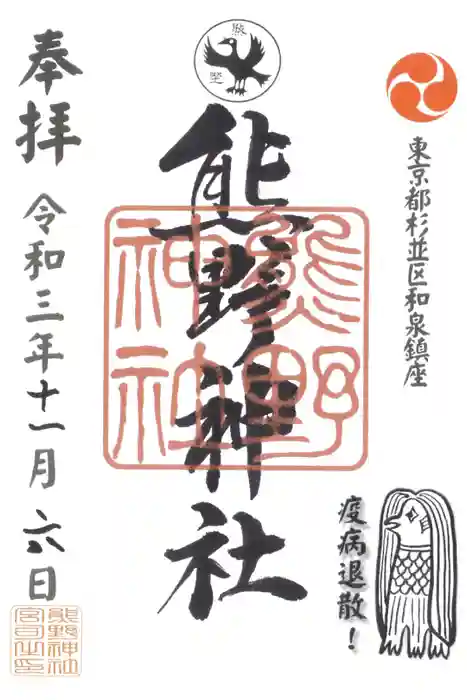 東京都杉並区和泉鎮座
疫病退散！
熊
野
熊野神社
熊野
神社
奉拝
令和三年十一月六日
熊野神社
宮司之印